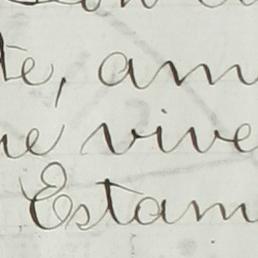 te, am
ue vive
Estam